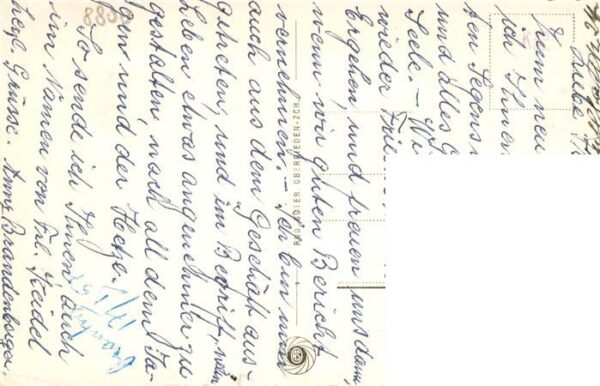 zum neu
ich Ihnen
ten Segens
und alles G
Seele. – Wi
wieder Frl.
Ergehen, und freuen uns dann,
wenn wir guten Bericht
vernehmen. – Ich bin nun
auch aus dem Geschäft aus-
getreten, und im Begriff, mein
Leben etwas angenehmer zu
gestalten, nach all dem Ja-
gen und der Hetze.
So sende ich Ihnen auch
im Namen von Frl. Keidel
herzl. Grüsse. Anny Brandenberger.
OBERRIEDEN-ZCH.